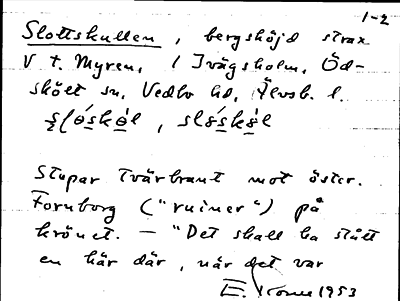 1-2
Slottskullen, bergshöjd strax
V t. Myren, i Ivägsholm, Öd-
skölt sn, Vedbo hd, Älvsb. l.
Stupar tvärbrant mot öster.
Fornborg ("ruiner") på
krönet. — "Det skall ha stått
en här där, när det var
E. 1953